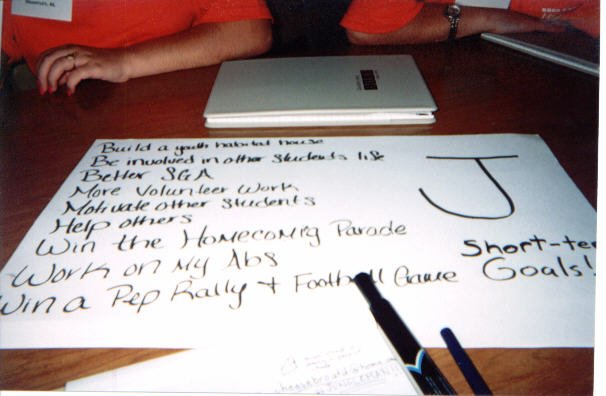 Build a youth habitat house
Be involved in other students life
Better SGA
More Volunteer Work
Motivate other students
Help others
Win the Homecoming Parade
Work on My Abs
Win a Pep Rally + Football Game
J
Short-ter
Goals!